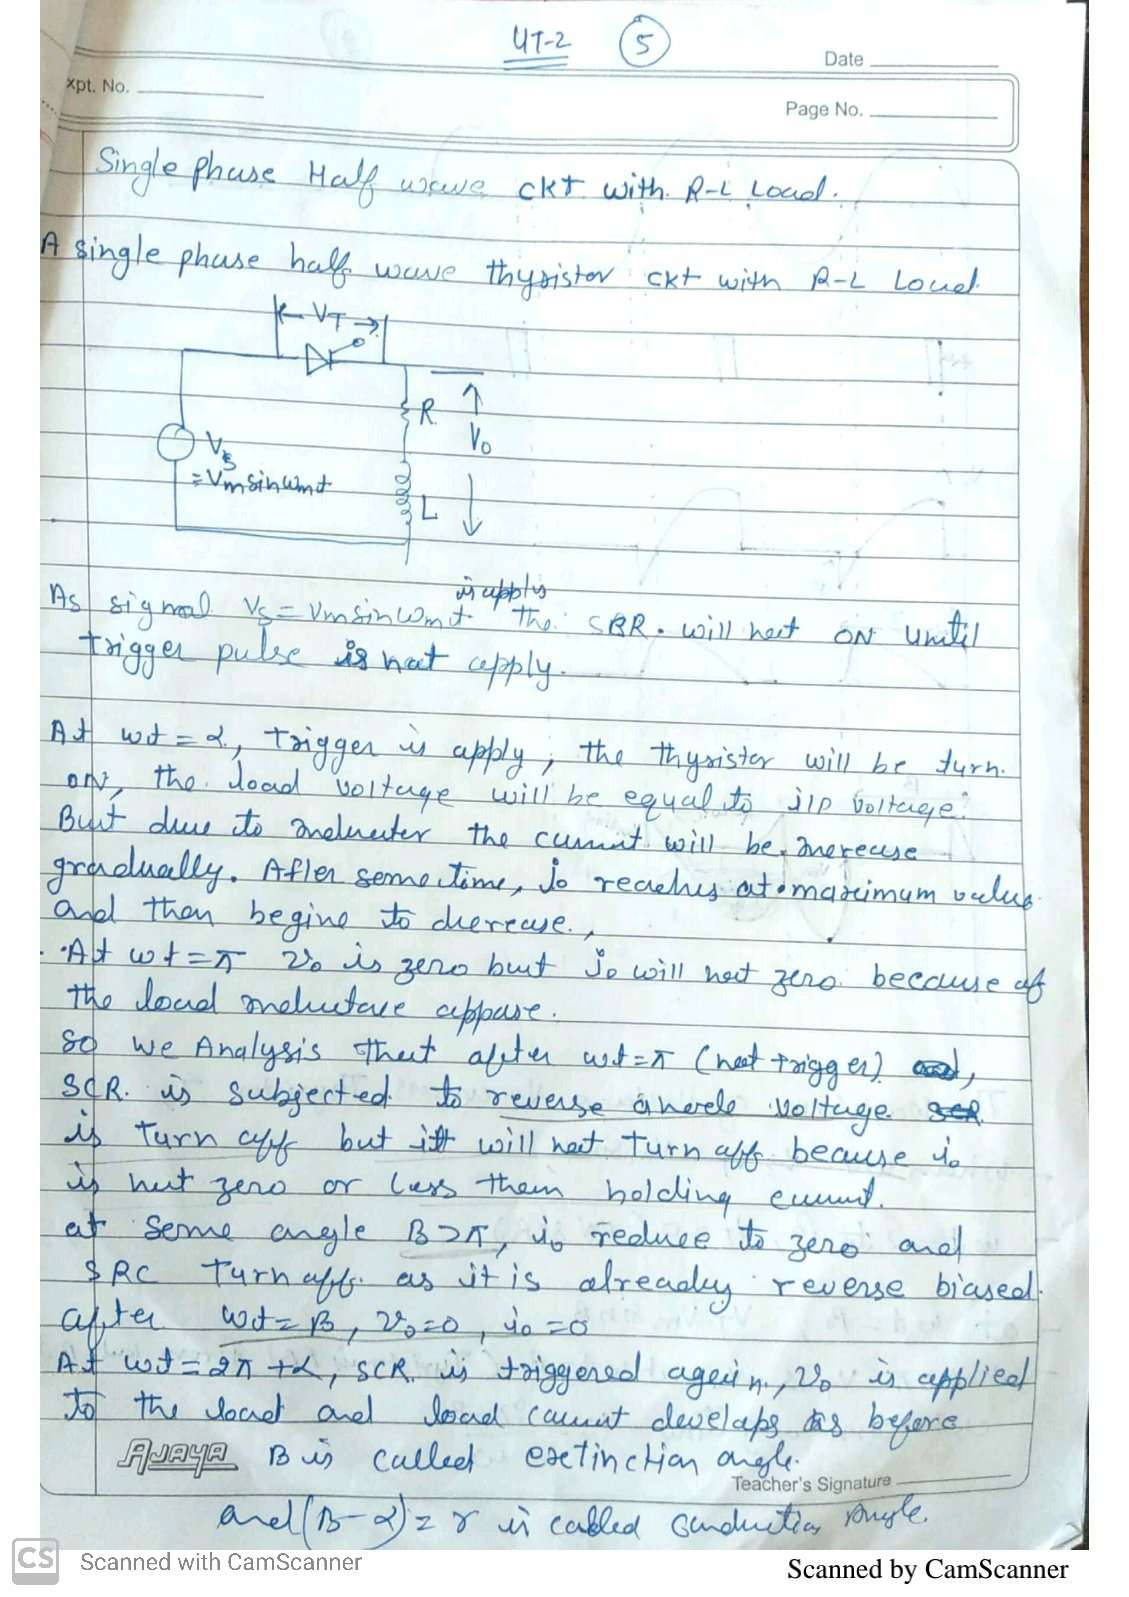 UT-2 5
Date
xpt. No.
Page No.
Single phase Half wave ckt with R-L Load.
A single phase half wave thyristor ckt with R-L Load
VT
R
Vo
Vs
= Vm sin wmt
L
is apply
As signal Vs = Vm sin wmt the SCR. will not ON until
trigger pulse is not apply.
At wt = α, trigger is apply, the thyristor will be turn.
on, the load voltage will be equal to i/p voltage.
But due to inductor the current will be increase
gradually. After some time, io reaches at maximum value
and then begine to decrease.,
At wt = π vo is zero but io will not zero because of
the load inductance
So we Analysis that after wt = π (not trigger)
SCR. is subjected to reverse anode voltage SCR
is turn off but it will not turn off because io
is not zero or less then holding current.
at some angle β>π, io reduce to zero and
SRC Turn off. as it is already reverse biased.
after wt = β, vo=0, io=0
At wt = 2π+α, SCR. is triggered again., vo is applied
to the load and load current develops as before
AJAYA β is called extinction angle.
Teacher's Signature
and (β-α) = r is called conduction angle.
CS Scanned with CamScanner
Scanned by CamScanner